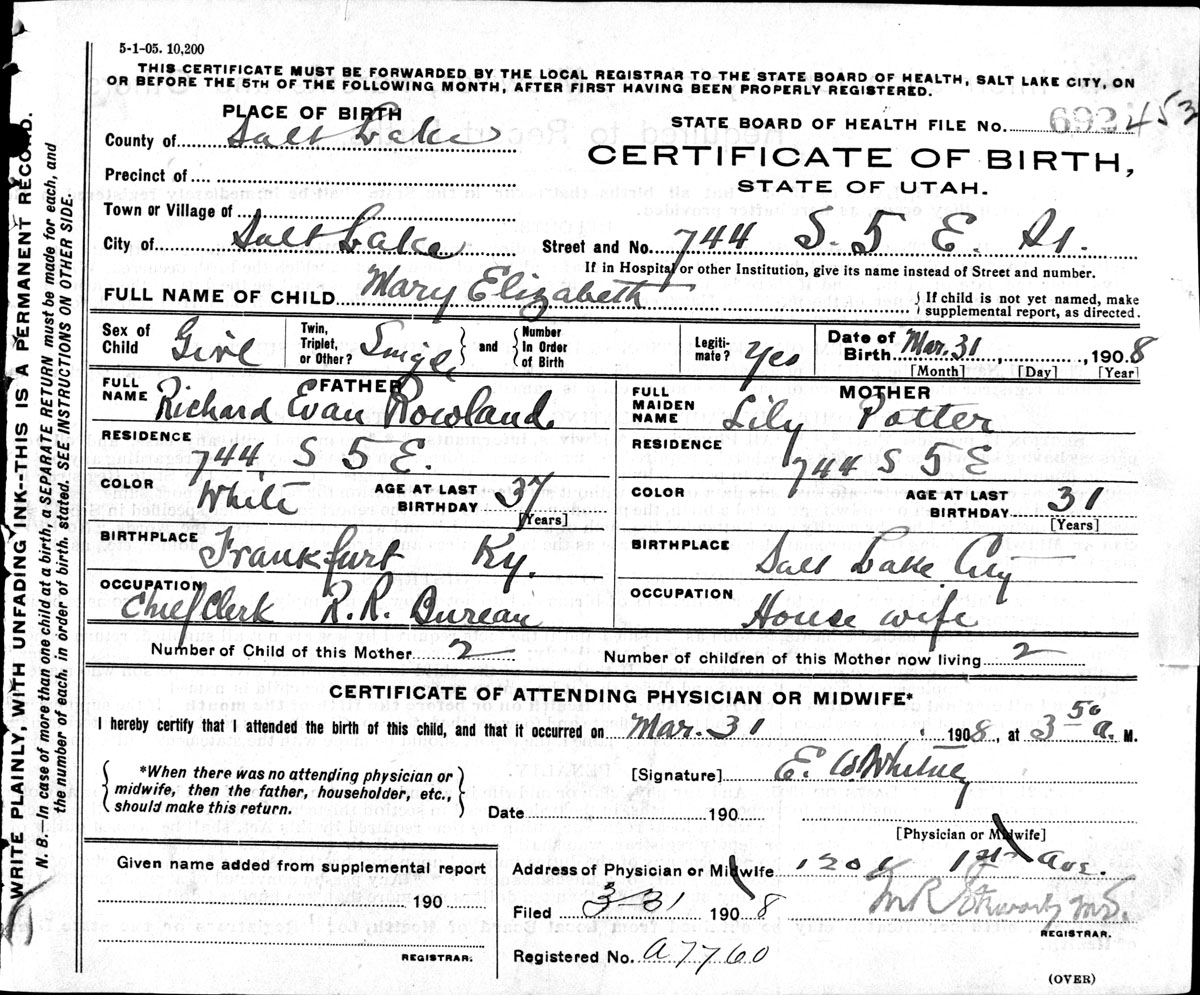 5-1-05. 10,200
THIS CERTIFICATE MUST BE FORWARDED BY THE LOCAL REGISTRAR TO THE STATE BOARD OF HEALTH, SALT LAKE CITY, ON
OR BEFORE THE 5TH OF THE FOLLOWING MONTH, AFTER FIRST HAVING BEEN PROPERLY REGISTERED.
WRITE PLAINLY, WITH UNFADING INK--THIS IS A PERMANENT RECORD.
N. B.—In case of more than one child at a birth, a SEPARATE RETURN must be made for each, and
the number of each, in order of birth, stated. SEE INSTRUCTIONS ON OTHER SIDE.
PLACE OF BIRTH
County of Salt Lake
Precinct of
Town or Village of
City of Salt Lake
STATE BOARD OF HEALTH FILE No. 692 453
CERTIFICATE OF BIRTH,
STATE OF UTAH.
Street and No. 744 S. 5 E. St.
If in Hospital or other Institution, give its name instead of Street and number.
FULL NAME OF CHILD Mary Elizabeth
If child is not yet named, make
supplemental report, as directed.
Sex of Child Girl
Twin, Triplet, or Other? Single and Number In Order of Birth
Legiti-mate? Yes
Date of Birth Mar. 31, 1908
[Month] [Day] [Year]
FATHER
FULL NAME Richard Evan Rowland
RESIDENCE 744 S 5 E.
COLOR White AGE AT LAST BIRTHDAY 37 [Years]
BIRTHPLACE Frankfurt Ky.
OCCUPATION Chief Clerk R.R. Bureau
MOTHER
FULL MAIDEN NAME Lily Potter
RESIDENCE 744 S 5 E
COLOR AGE AT LAST BIRTHDAY 31 [Years]
BIRTHPLACE Salt Lake City
OCCUPATION House wife
Number of Child of this Mother 2 Number of children of this Mother now living 2
CERTIFICATE OF ATTENDING PHYSICIAN OR MIDWIFE*
I hereby certify that I attended the birth of this child, and that it occurred on Mar. 31 1908, at 3 50 a. M.
*When there was no attending physician or
midwife, then the father, householder, etc.,
should make this return.
[Signature] E. W Whitney
Date 190
[Physician or Midwife]
Given name added from supplemental report
190
REGISTRAR.
Address of Physician or Midwife 1201 1st Ave.
Filed 3-31 1908
M.D.
REGISTRAR.
Registered No. A7760
(OVER)